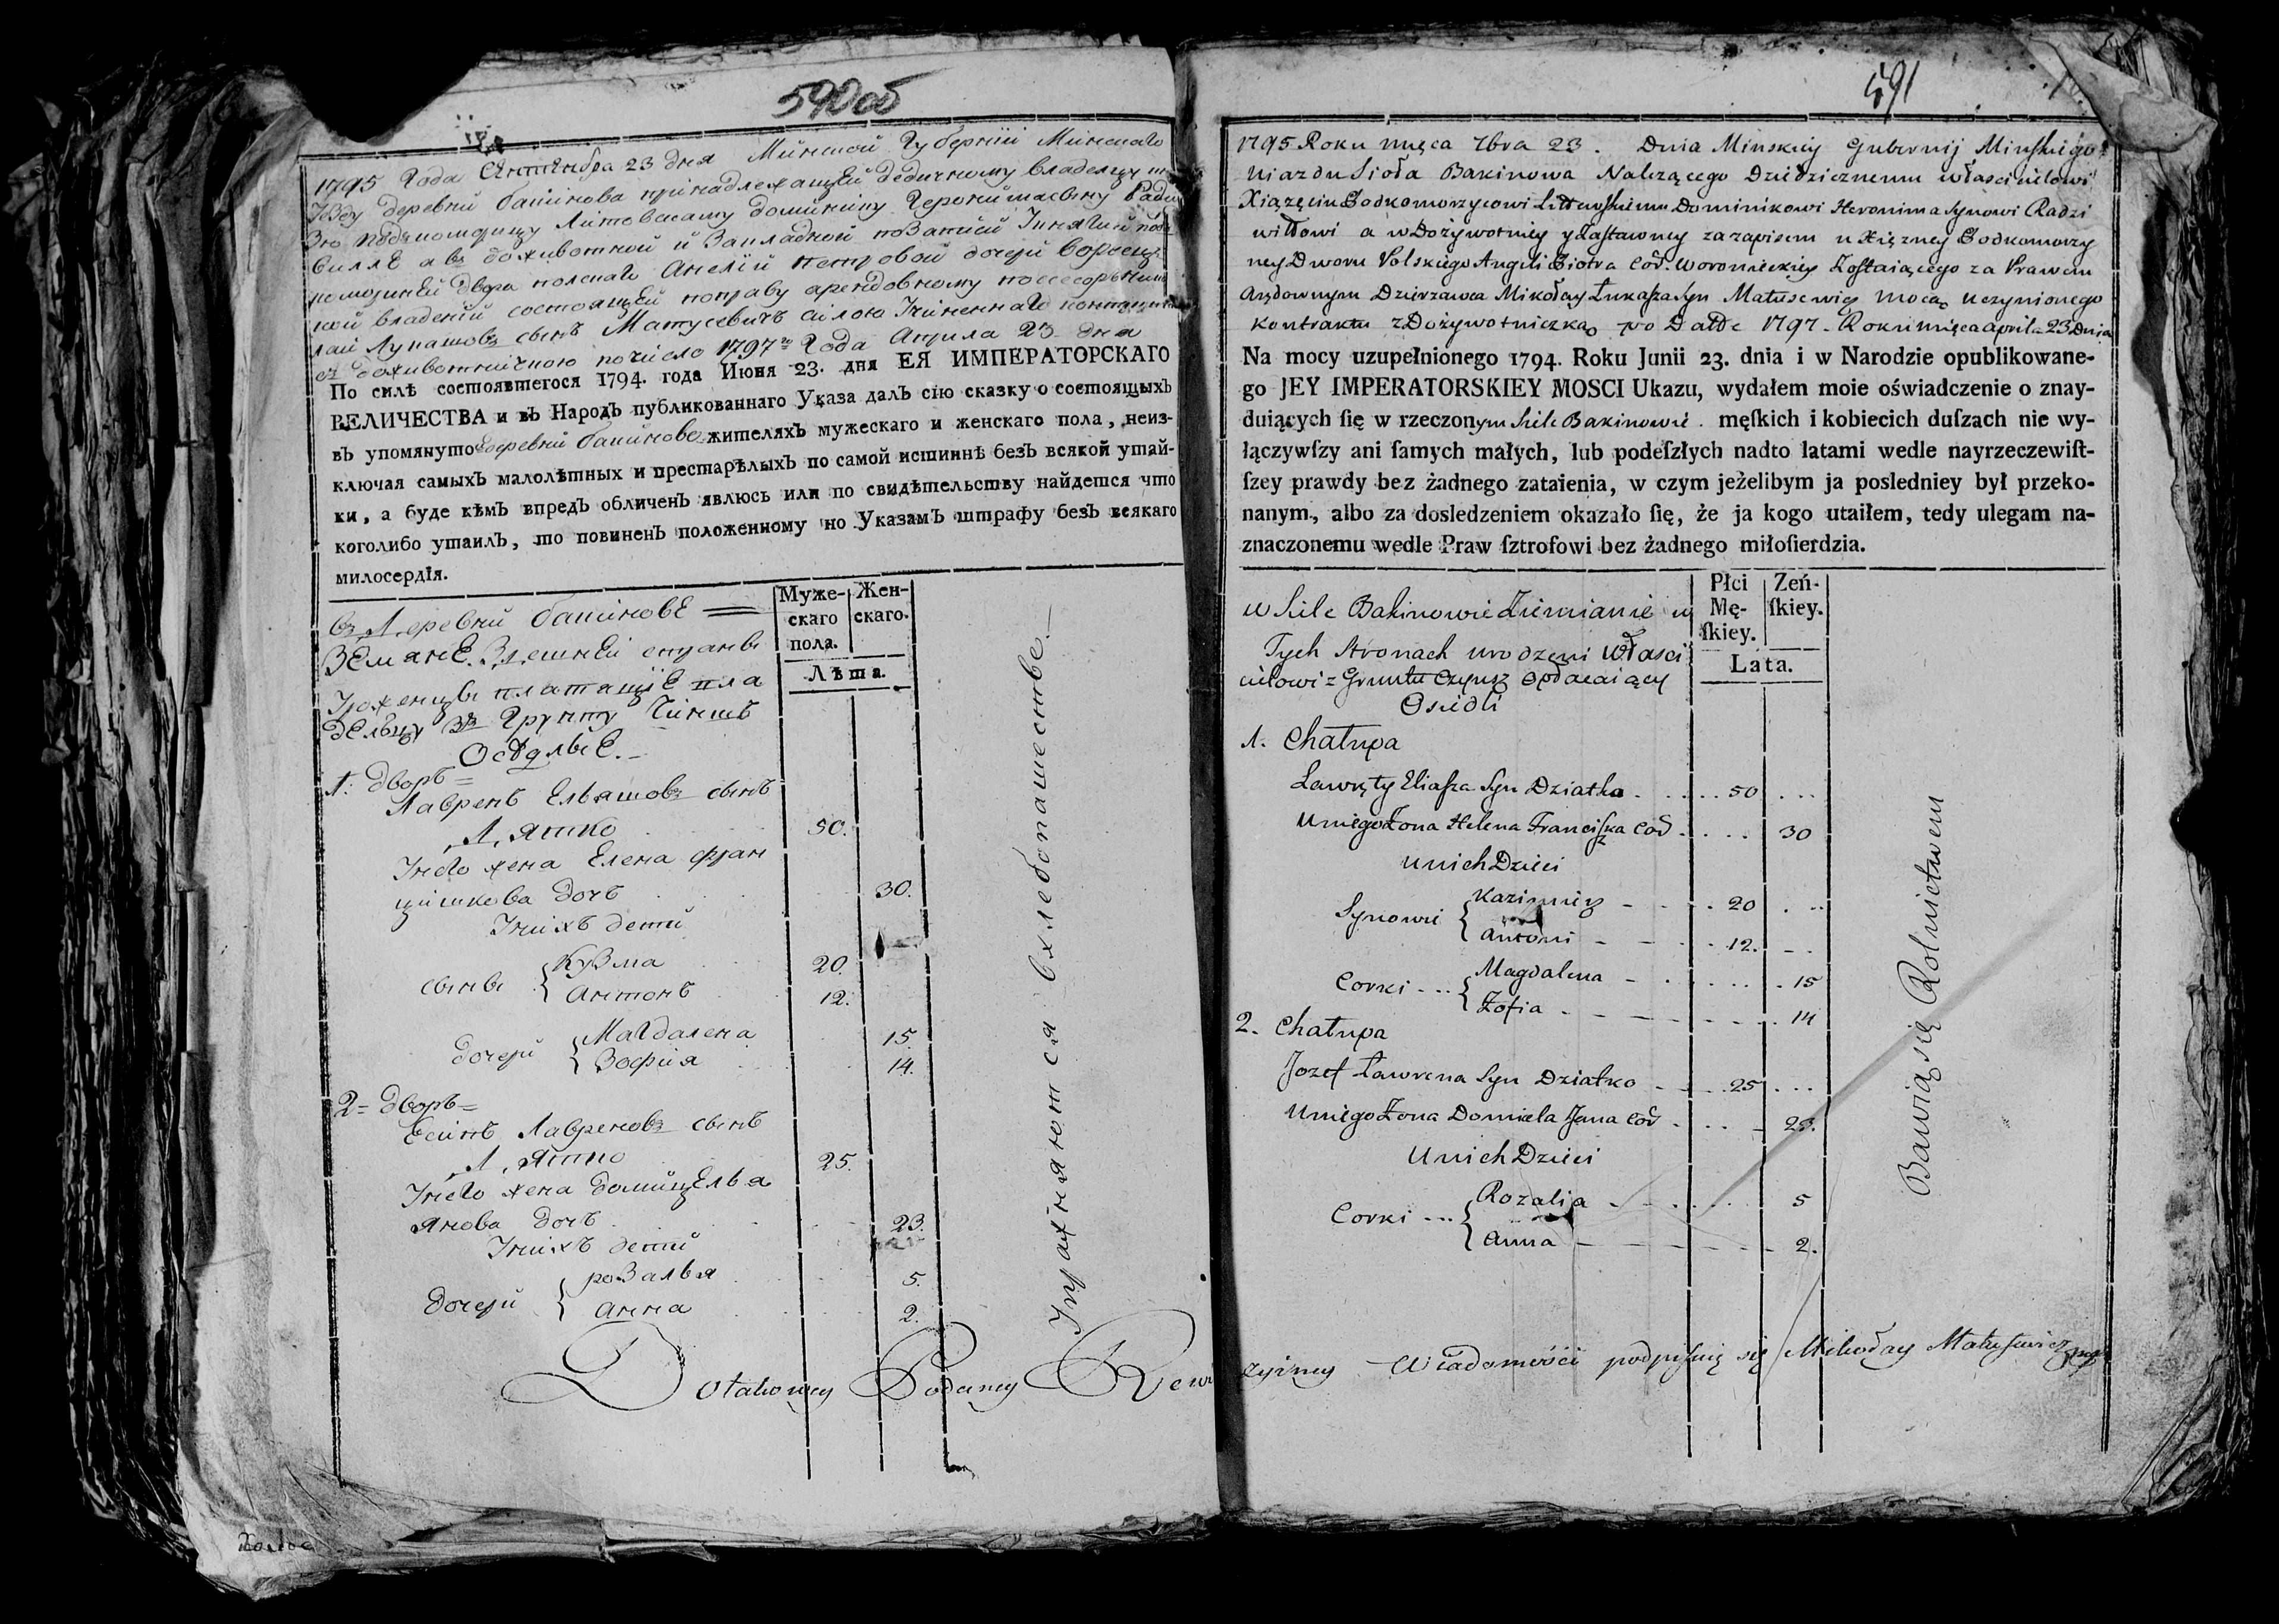 590об
1795 Года Сентебра 23 дня Минской Губернии Минскаго
деревни Бакинова принадлежащей дедичному владельцу
Литовскому Доминику ГеронимасынуРади
виллѣ а въ доживотной и Закладной
Двора полскаго Анелiи Петровой дочери
владенiи состоящей поправу арендовному
лай Лукашовъ сынъ Матусевичъ силою Учиненнаго
съ доживотничкою почисло 1797го Года Априла 23 дня
По силѣ состоявшегося 1794. года Июня 23. дня ЕЯ ИМПЕРАТОРСКАГО
ВЕЛИЧЕСТВА и въ Народъ публикованнаго Указа далъ сiю сказку о состоящыхъ
въ упомянуто деревни Бакинове жителяхъ мужескаго и женскаго пола, неиз-
ключая самыхъ малолѣтныхъ и престарѣлыхъ по самой истиннѣ безъ всякой утай-
ки, а буде кѣмъ впредъ обличенъ явлюсь или по свидѣтельству найдется что
коголибо утаилъ, то повиненъ положенному по Указамъ штрафу безъ всякаго
милосердiя.
Муже-скаго пола. Жен-скаго.
Лѣта.
въ Деревни Бакиновѣ
Земянѣ Здешнеи стуаны
Уроженцы платящiе вла
дельцу Зъ Грунту Чиншъ
Осѣдлые.
1: дворъ =
Лавренъ Ельяшовъ сынъ
Дятко 50.
Унего жена Елена фран
цишкова дочъ 30.
Унихъ дети
сыны { Кузма 20.
Антонъ 12.
дочери { Магдалена 15.
Зофия 14.
2 = дворъ =
Есипъ Лавреновъ сынъ
Дятко 25.
Унего жена Домицелья
Янова дочъ 23.
Унихъ дети
дочери { розалья 5.
анна 2.
Упражняются вхлебопашестве.
Dotakowey Podaney Rewi
591
1795 Roku mięca 7bra 23. Dnia Minskiey Gubernij Minskiego
Ujazdu Sioła Bakinowa Nalezącego Dziedzicznemu własciucielowi
Xiązęciu Podkomorzycowi Littewskiemu Dominikowi Heronima Synowi Radzi
wiłłowi a w Dożywotniey y Zastawney za zapisem u Xięzney Podkomorzy
ney Dworu Polskiego Angeli Piotra Cór. Woronieckiey Zostaiącego za Prawem
Arędownym Dzierzawca Mikołay Łukasza Syn Matusewicz mocą uczynionego
kontraktu z Dożywotniczką po Datte 1797. Roku mięca april. 23 Dnia
Na mocy uzupełnionego 1794. Roku Junii 23. dnia i w Narodzie opublikowane-
go JEY IMPERATORSKIEY MOSCI Ukazu, wydałem moie oświadczenie o znay-
duiących ſię w rzeczonym Siele Bakinowie. męſkich i kobiecich duſzach nie wy-
łączywſzy ani ſamych małych, lub podeſzłych nadto latami wedle nayrzeczewiſt-
ſzey prawdy bez żadnego zataienia, w czym jeżelibym ja posledniey był przeko-
nanym, albo za dosledzeniem okazało ſię, że ja kogo utaiłem, tedy ulegam na-
znaczonemu wedle Praw ſztrofowi bez żadnego miłoſierdzia.
Płci Mę-ſkiey. Zeń-ſkiey.
Lata.
w Siele Bakinowie Ziemianie w
Tych Stronach urodzeni Własci
cielowi z Gruntu Czynsz opdacaiący
Osiedli
1. Chałupa
Lawręty Eliasza Syn Dziatko 50
Uniego Zona Helena Franciszka Cór 30
U nich Dzieci
Synowie { Kazimierz 20
Antoni 12.
Corki { Magdalena 15
Zofia 14
2. Chałupa
Jozef Ławrena Syn Dziatko 25
Uniego Zona Domicela Jana Cór 23.
U nich Dzieci
Corki { Rozalia 5
Anna 2.
Bawią się Rolnictwem
zyiney Wiadomości podpisuię się Mikołay Matusewicz